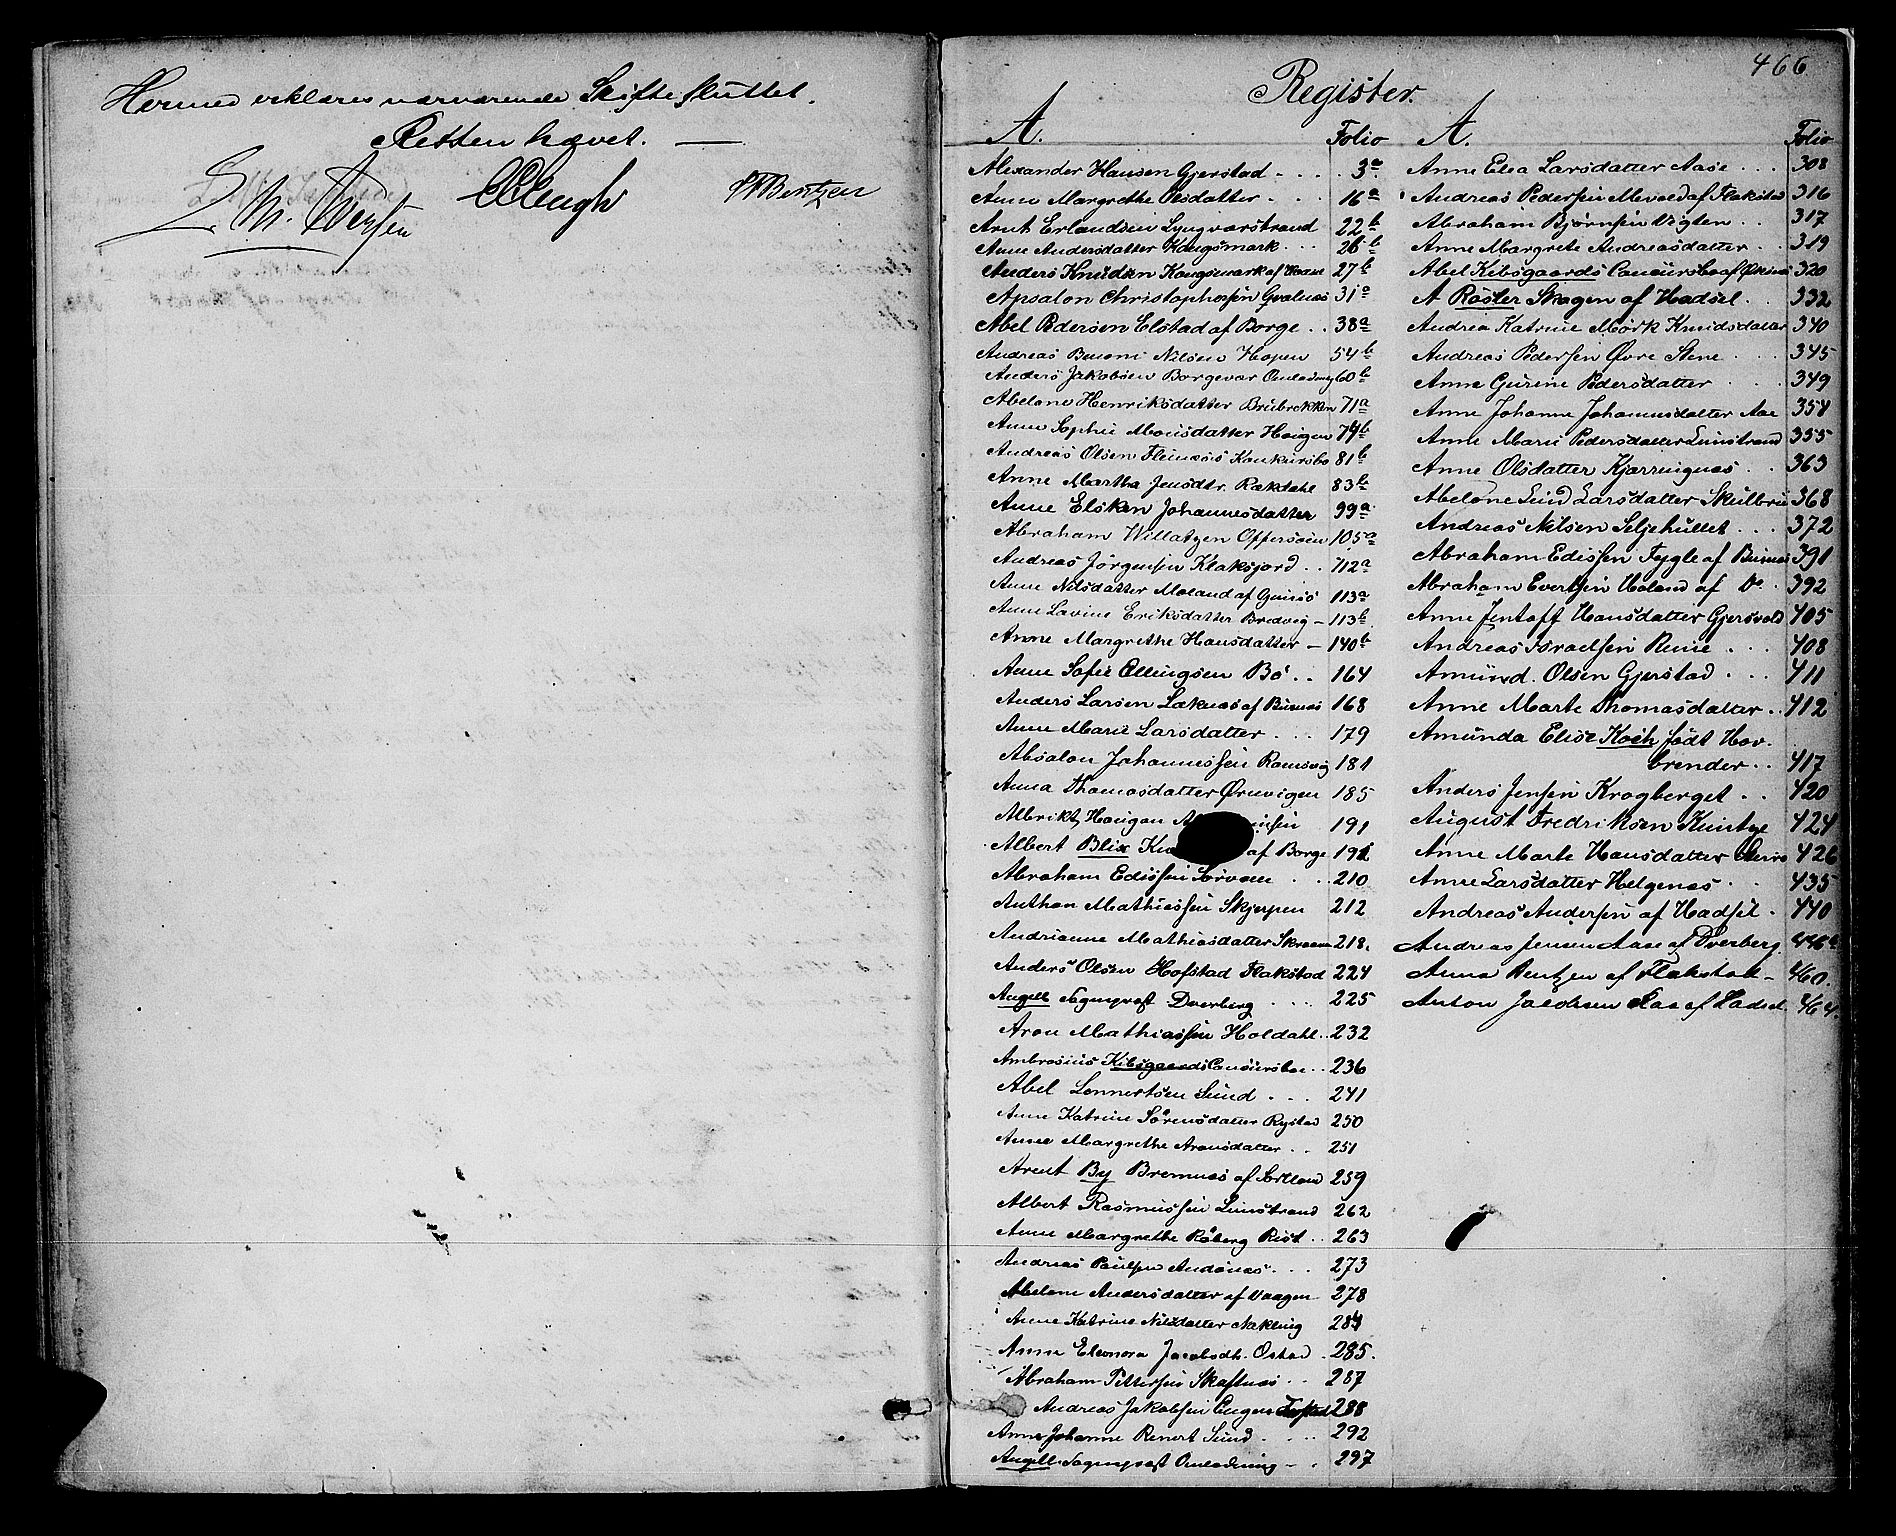 Hermed erklæres nærværende Skifte sluttet.
Retten hævet. —
466
Register.
A. Folio
Alexander Hansen Gjerstad - . . . 3a
Anne Margrethe Olsdatter . . . 16a
Arnt Erlandsen Lyngværstrand 22b
Anne Andersdatter Kongsmark . . . 26b
Anders Knudsen Kongsmark af 27b
Apsalon Christophersen Gvalnæs 31a
Abel Pedersen Elstad af Borge . . 38a
Andreas Benoni Nilsen Hopen 54b
Anders Jakobsen Borgevær Omlodning 60b
Abelone Henriksdatter Brubrekken 71a
Anne Sophie Monsdatter Haugen 74b
Andreas Olsen Fleinæses Konkursbo 81b
Anne Martha Jensdtr. Rækdahl 83b
Anne Elsken Johannesdatter 99a
Abraham Willatzen Offersøen 105a
Andreas Jørgensen Klaksjord . . 112a
Anne Nilsdatter Moland af Gimsö 113a
Anne Lavine Eriksdatter Bredvig - 113b
Anne Margrethe Hansdatter - 140b
Anne Sofie Ellingsen Bö . . 164
Anders Larsen Læknæs af Buxnæs 168
Anne Marie Larsdatter . . . 179
Absalon Johannessen Ramsvig 181
Anna Thomasdatter Ørnvigen 185
Albrikt Haugan 191
Albert Blix af Borge 192
Abraham Edissen Sörvaen . . 210
Anthon Mathiassen Skjerpen 212
Andrianne Mathiasdatter 218.
Anders Olsen Hofstad Flakstad 224
Angell Sogneprest Dverberg . . . 225
Aron Mathiassen Holdahl . . 232
Ambrosius Kibsgaards Concursbo . . 236
Abel Lennertsen Sund . . . 241
Anne Katrine Sörensdatter Rystad 250
Anne Margrethe Aronsdatter . . 251
Arent By Bremnes af Sortland 259
Albert Rasmussen Limstrand 262
Anne Margrethe Röberg Rist . . 263
Andreas Paulsen Andönæs . . . 273
Abelone Andersdatter af Vaagen 278
Anne Katrine Nilsdatter Nakling 284
Anne Eleonora Jacobsdt. Ostad . 285.
Abraham Pettersen Skaftnæs . . 287
Andreas Jakobsen Engen 288
Anne Johanne Renert Sund . . . 292
Angell Sogneprest Omlodning - . 297
A. Folio
Anne Elea Larsdatter Aase . . . 308
Andreas Pedersen Mevold af Flakstad 316
Abraham Björnsen Vigten . . 317
Anne Margrete Andreasdatter . . 319
Abel Kibsgaards Concursbo af 320
A Röster Skagen af Hadsel . . 332
Andrea Katrine Mörk Knudsdatter 340
Andreas Pedersen Övre Stene . . . 345
Anne Gurine Pedersdatter . . . 349
Anne Johanne Johannesdatter Aae 354
Anne Marie Pedersdatter Limstrand 355
Anne Olsdatter Kjærringnæs . . 363
Abelone Lund Larsdatter 368
Andreas Nilsen Seljehullet . . . 372
Abraham Edissen Fygle af Buxnæs 391
Abraham Evertsen Holand af Do . 392
Anne Jentoff Hansdatter Gjersvold 405
Andreas Israelsen Reine . . . 408
Amund. Olsen Gjerstad . . . 411
Anne Marte Thomasdatter . . 412
Amunda Elise Koch födt Hov-
brender . . 417
Anders Jensen Krogberget . . 420
August Fredriksen 424
Anne Marte Hansdatter 426
Anne Larsdatter Helgenæs . . 435
Andreas Andersen af Hadsel . 440
Andreas Jensen Aase af Dverberg 446a
Anna Bentzen af Flakstad - 460.
Anton Jacobsen af Hadsel 464.